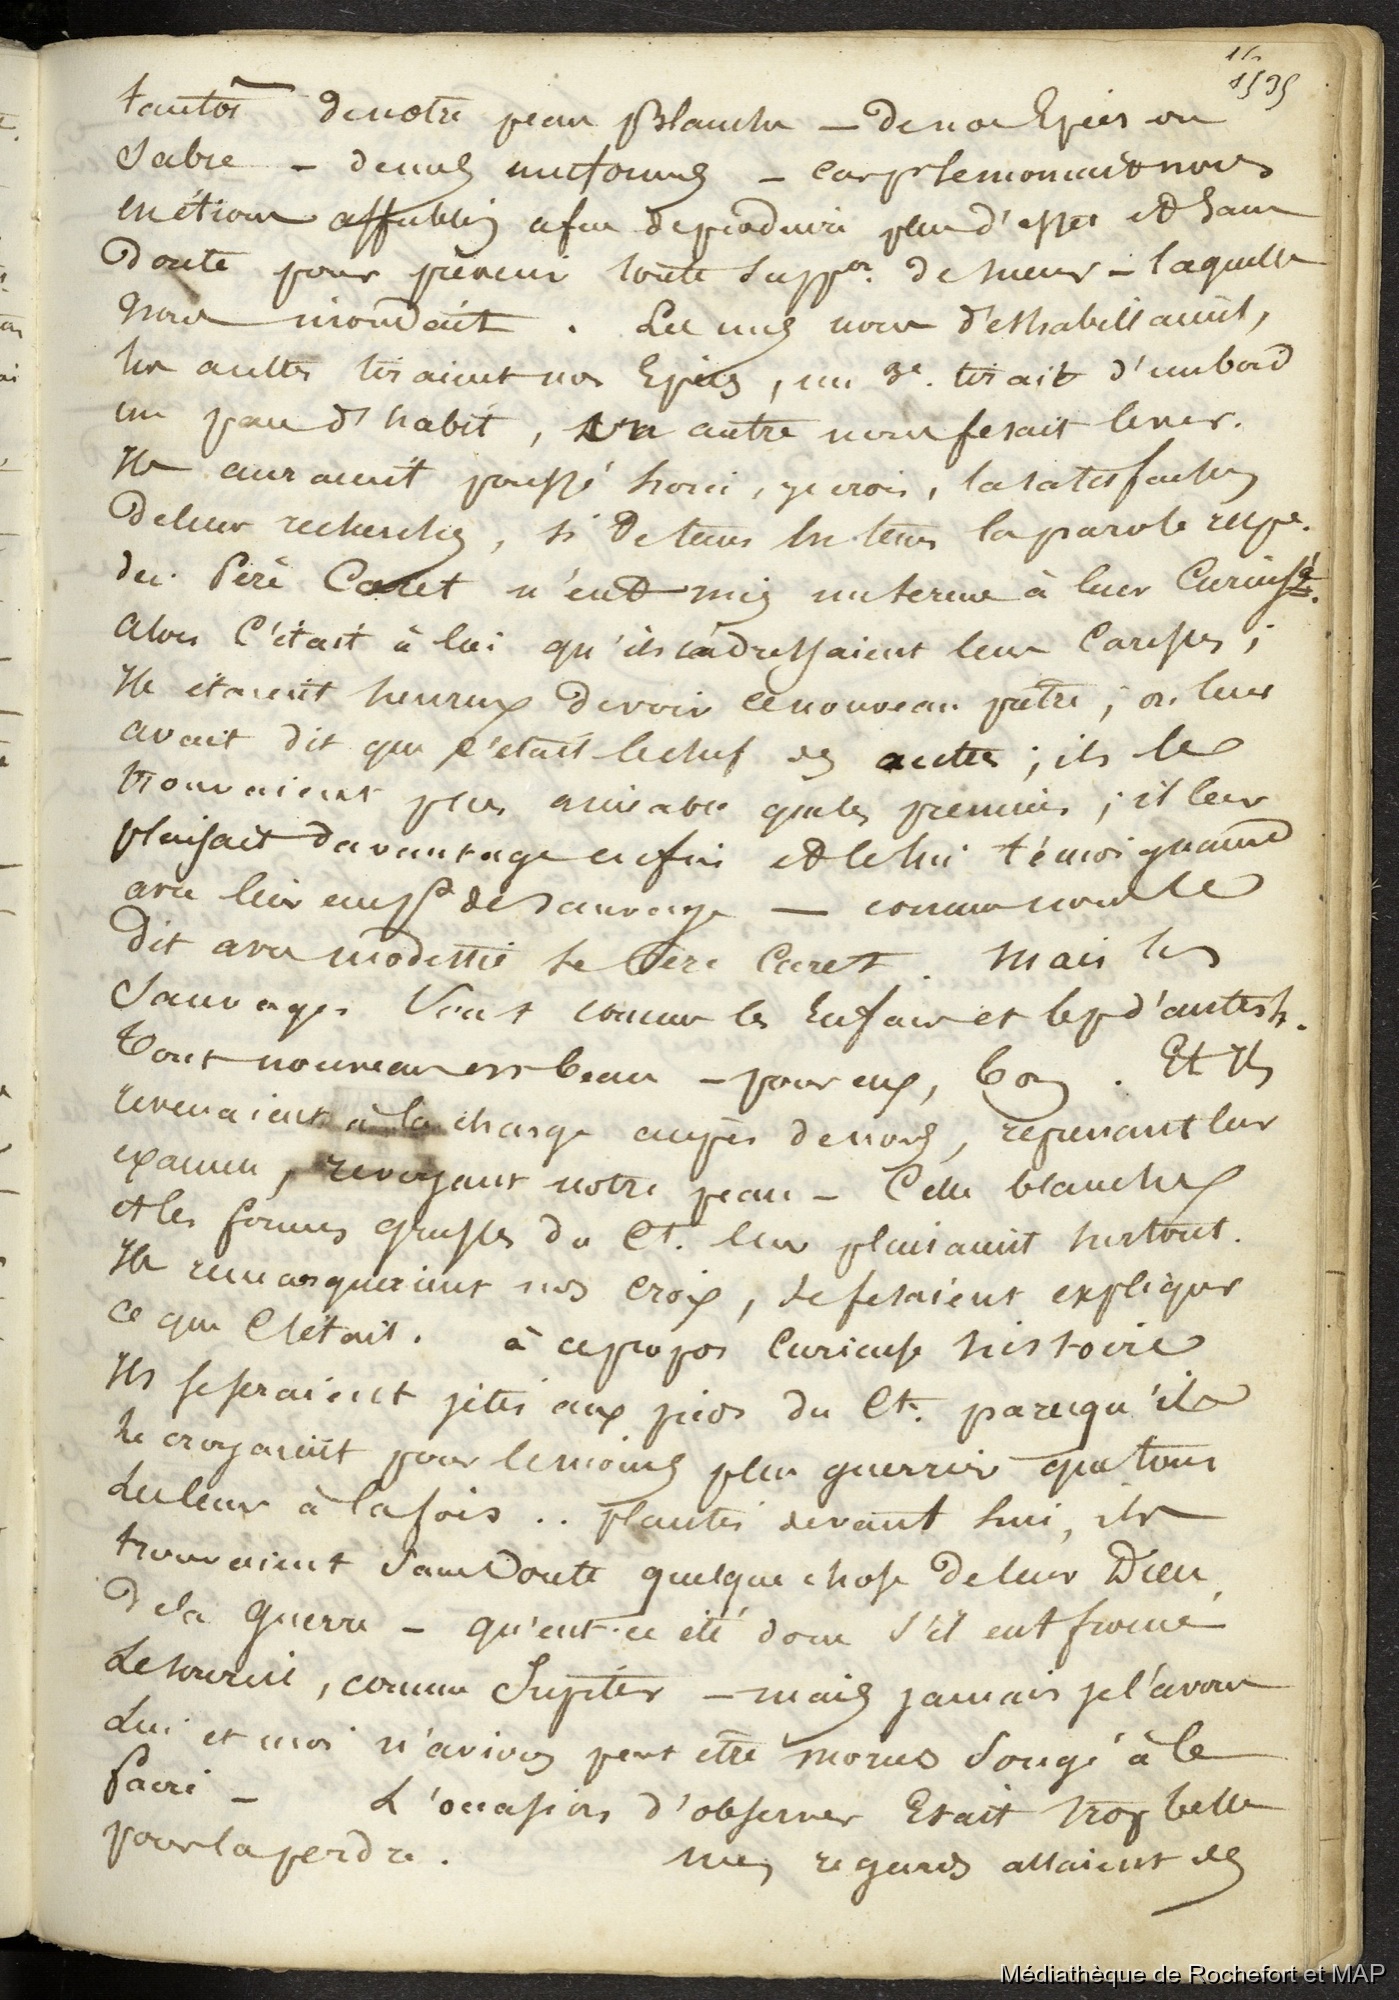 1535
tantôt de notre peau Blanche – de nos Epées ou
Sabre – de nos uniformes – car pr le moment nous
en étions affublés afin de produire plus d'effet et sans
Doute pour prévenir toute suppon. de sueur – laquelle
nous inondait. Les uns nous déshabillaient,
les autres tiraient nos Epées, un 3e. tirait d'un bord
un pan d'habit, un autre nous fesait lever.
Ils auraient poussé loin, je crois, la satisfaction
de leur recherches, si de tems en tems la parole
du Père Caret n'eut mis un terme à leur Curiosité.
Alors C'était à lui qu'ils adressaient leurs Caresses ;
Ils étaient heureux de voir ce nouveau prêtre ; on leur
avait dit que c'était le chef des autres ; ils le
trouvaient plus aimable que les premiers ; il leur
plaisait davantage enfin et le lui témoignaient
avec leur de Sauvage – comme nous le
Dit avec modestie le Père Caret. Mais les
Sauvages Sont comme les Enfans et les d'autres
Tout nouveau est beau – pour eux, bon. Et Ils
revenaient à la charge auprès de nous, reprenant leur
examen, revoyant notre peau – Celle blanche
et les formes grasses du Ct. leur plaisaient surtout.
Ils remarquèrent nos croix, se fesaient expliquer
ce que C'était. à ce propos Curieuse histoire
Ils se seraient jetés aux pieds du Ct. parcequ'ils
le croyaient pour le moins plus guerrier que tous
les leurs à la fois .. plantés devant lui, ils
trouvaient sans Doute quelque chose de leur Dieu
de la guerre – qu'eut-ce été donc s'il eut froncé
Le sourcil, comme Jupiter – mais jamais je l'avoue
Lui et moi n'avions peut être moins Songé à le
faire – L'occasion d'observer Etait trop belle
pour la perdre. mes regards allaient des
Médiathèque de Rochefort et MAP